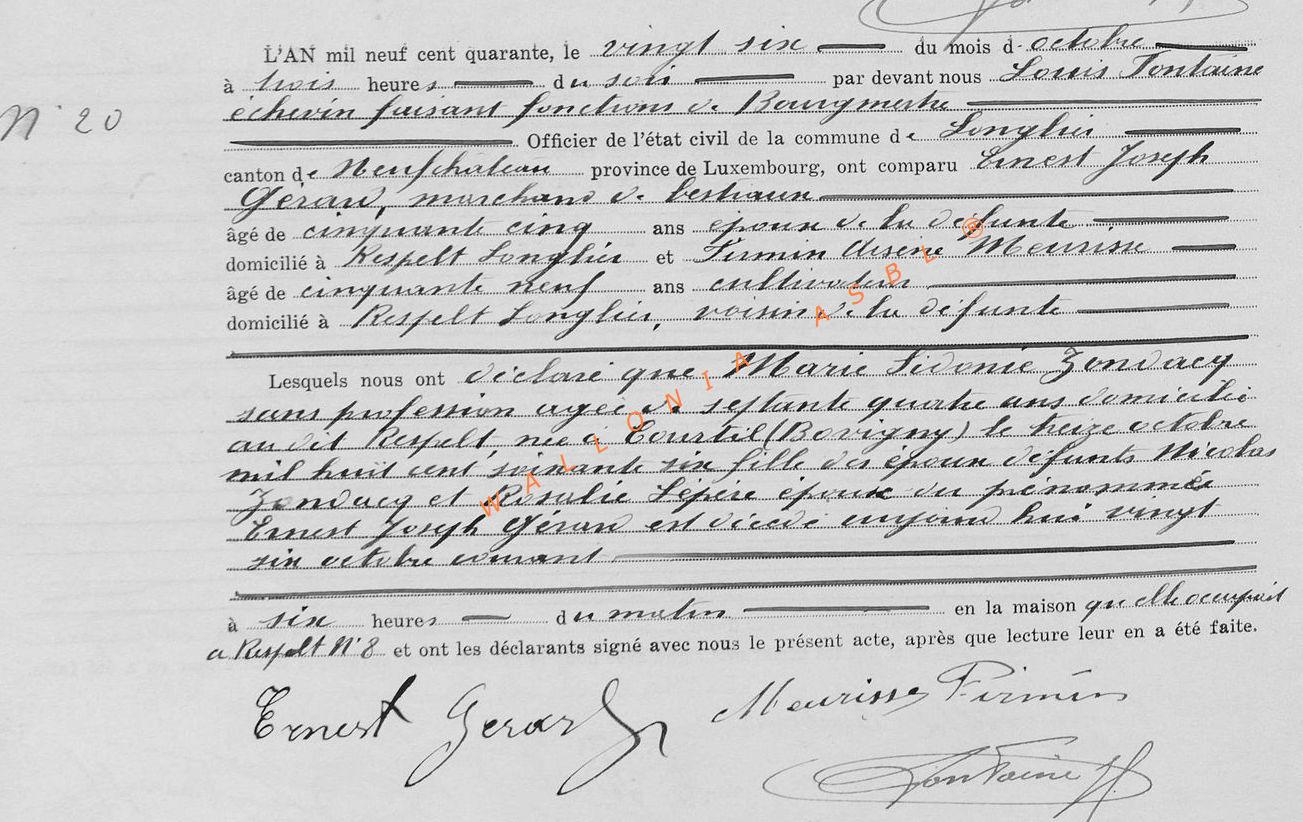 L'AN mil neuf cent quarante, le vingt six du mois d'octobre
à trois heures du soir par devant nous Louis Fontaine
échevin faisant fonctions de Bourgmestre
N° 20
Officier de l'état civil de la commune de Longlier
canton de Neufchateau province de Luxembourg, ont comparu Ernest Joseph
Gérard, marchand de bestiaux
âgé de cinquante cinq ans époux de la défunte
domicilié à Respelt Longlier et Firmin Arsène Meurisse
âgé de cinquante neuf ans cultivateur
domicilié à Respelt Longlier, voisin de la défunte
Lesquels nous ont déclaré que Marie Sidonie Zondacq
sans profession agée de septante quatre ans domicilié
au dit Respelt, née à Courtil (Bovigny) le treize octobre
mil huit cent soixante six fille des époux défunts Nicolas
Zondacq et Rosalie Lépère épouse du prénommé
Ernest Joseph Gérard est décédé aujourd'hui vingt
six octobre courant
à six heures du matin en la maison qu'elle occupait
à Respelt N°8 et ont les déclarants signé avec nous le présent acte, après que lecture leur en a été faite.
Ernest Gerard Meurisse Firmin
Fontaine
WALLONIA ASBL ®